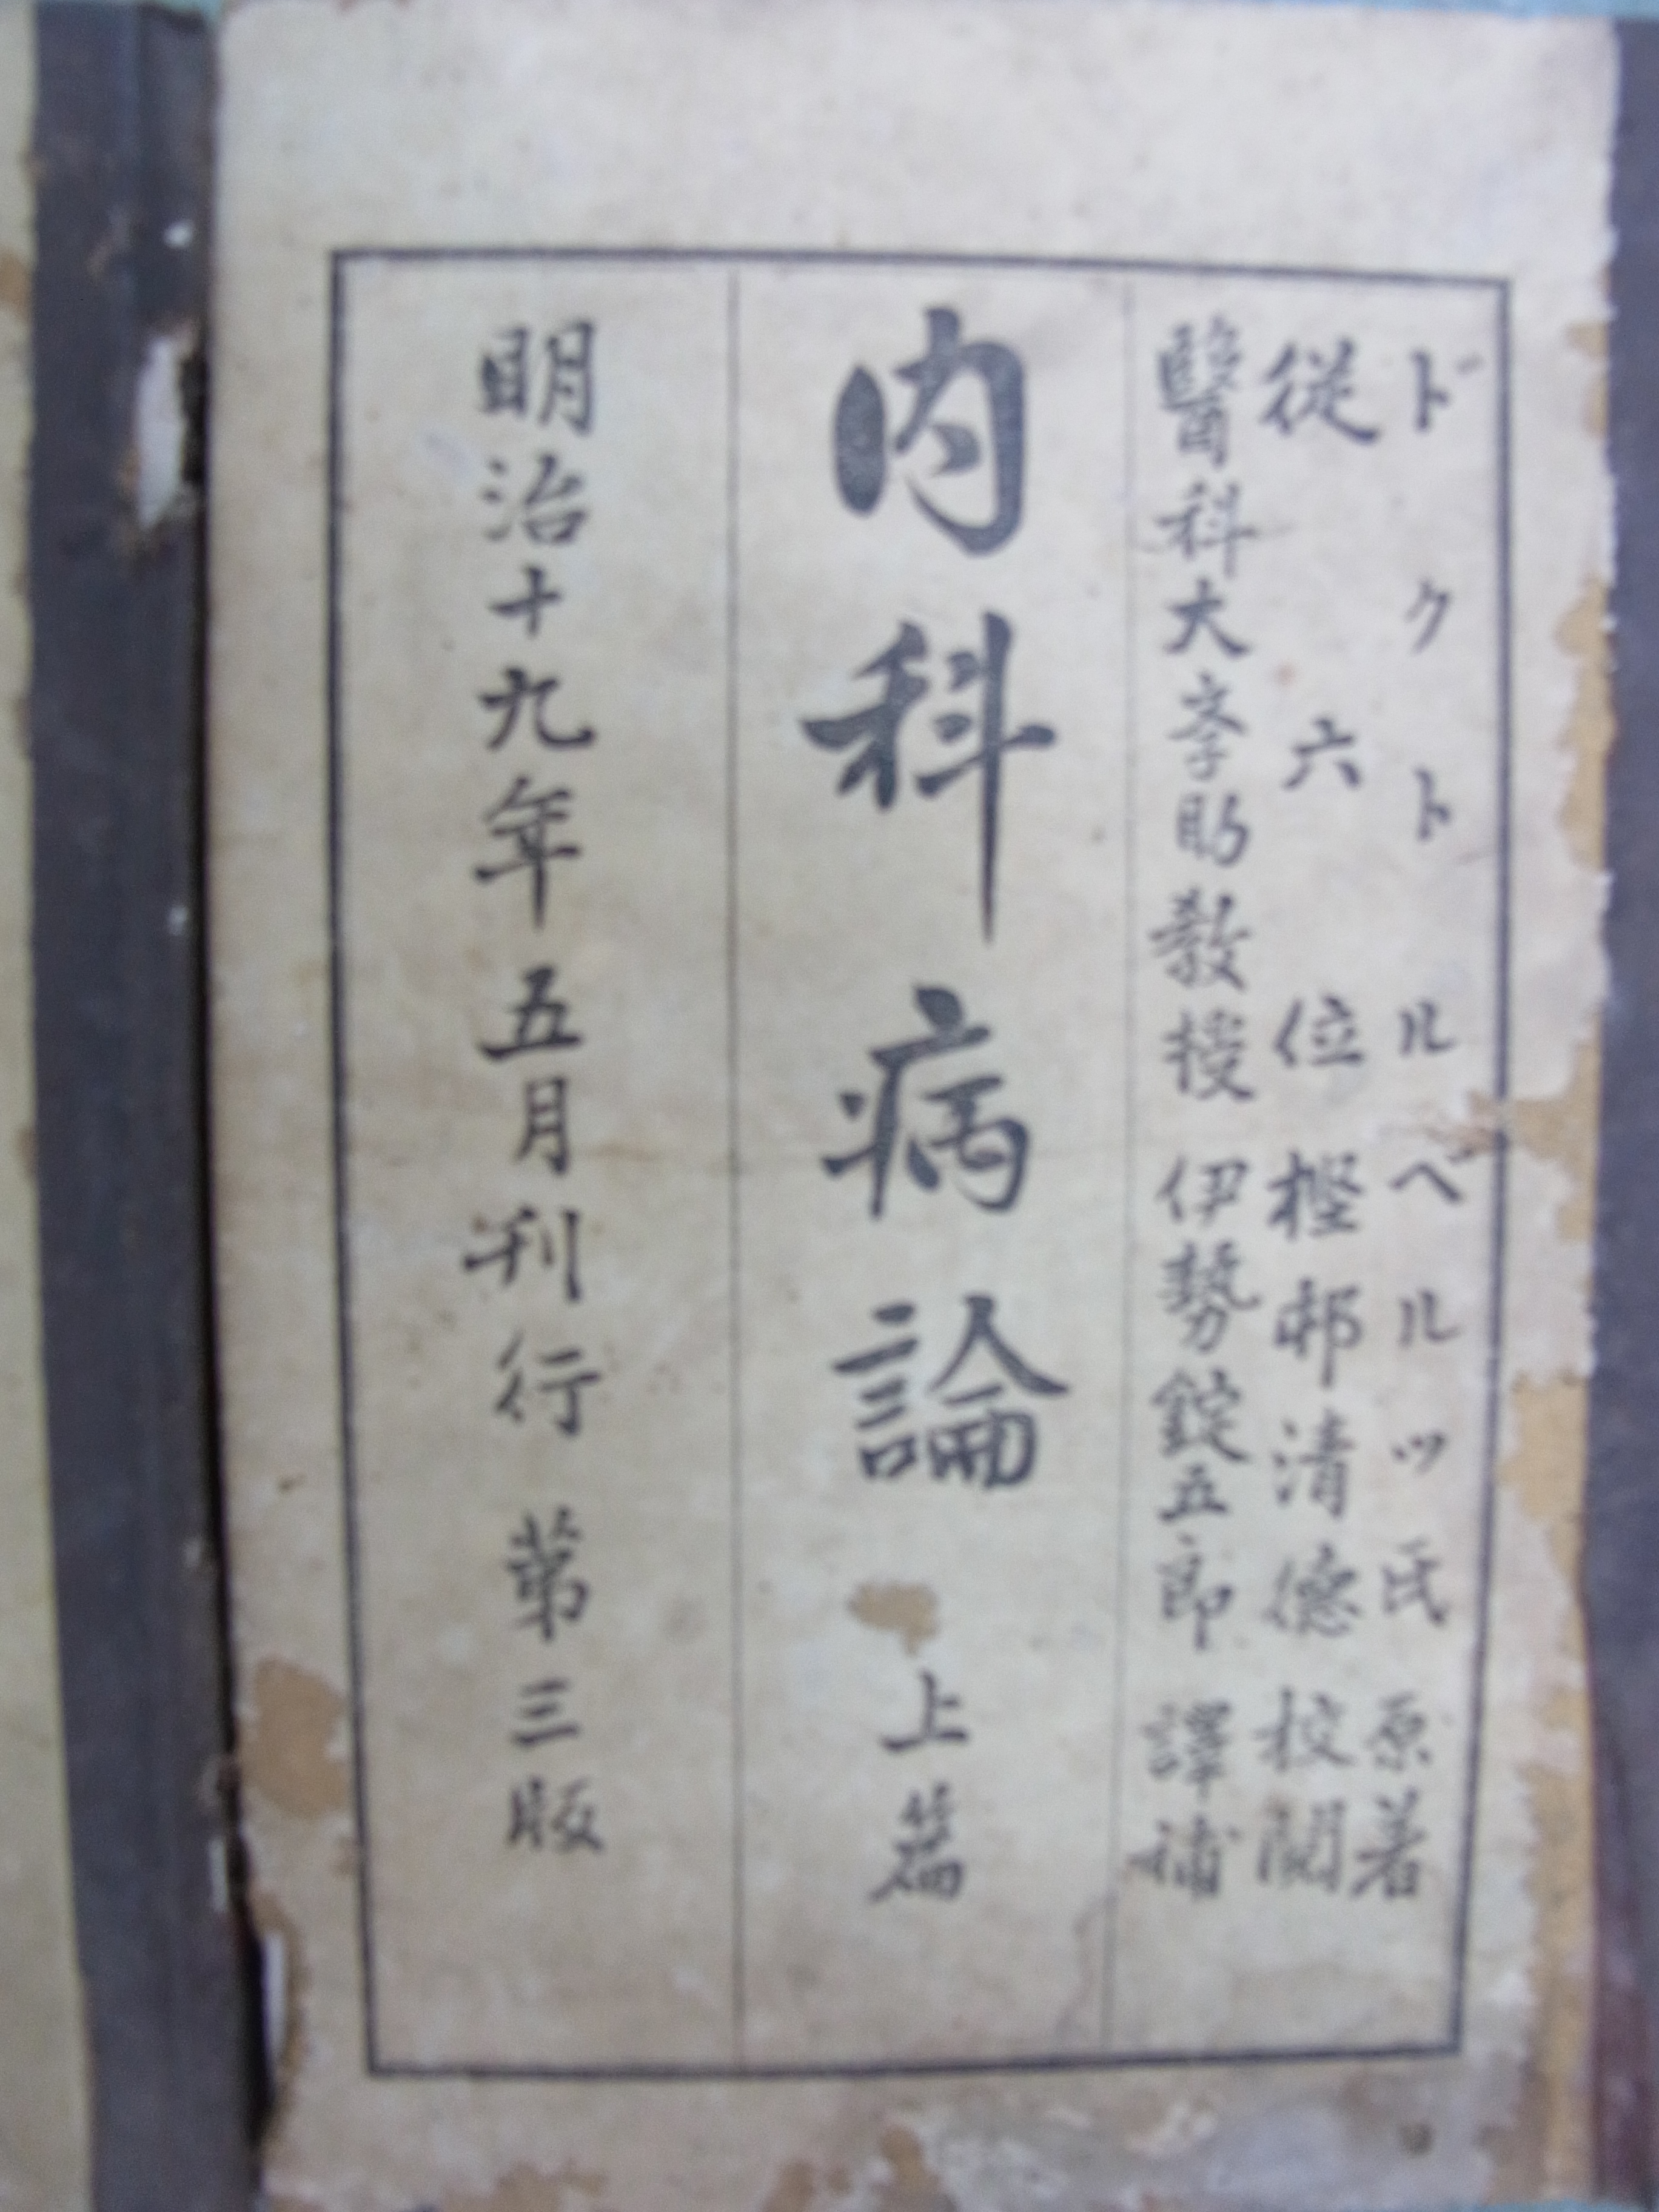 ドクトル ベルツ氏 原著
從六位 樫邨清德 校閲
醫科大学助教授 伊勢錠五郎 譯補
内科病論 上篇
明治十九年五月刊行 第三版